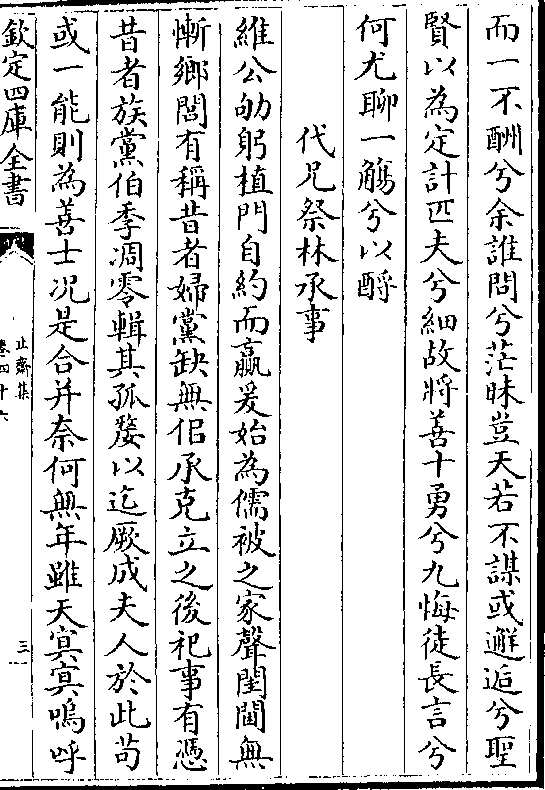 而一不酬兮余誰問兮茫昧豈天若不謀或邂逅兮聖
賢以為定計匹夫兮細故將善十勇兮九悔徒長言兮
何尤聊一觴兮以酹
代兄祭林承事
維公劬躬植門自約而贏爰始為儒被之家聲閨閫無
慚鄉閭有稱昔者婦黨缺無侣承克立之後祀事有憑
昔者族黨伯季凋零輯其孤嫠以迄厥成夫人於此茍
或一能則為善士况是合并奈何無年雖天㝠㝠嗚呼
欽定四庫全書
止齋集
卷四十六
三